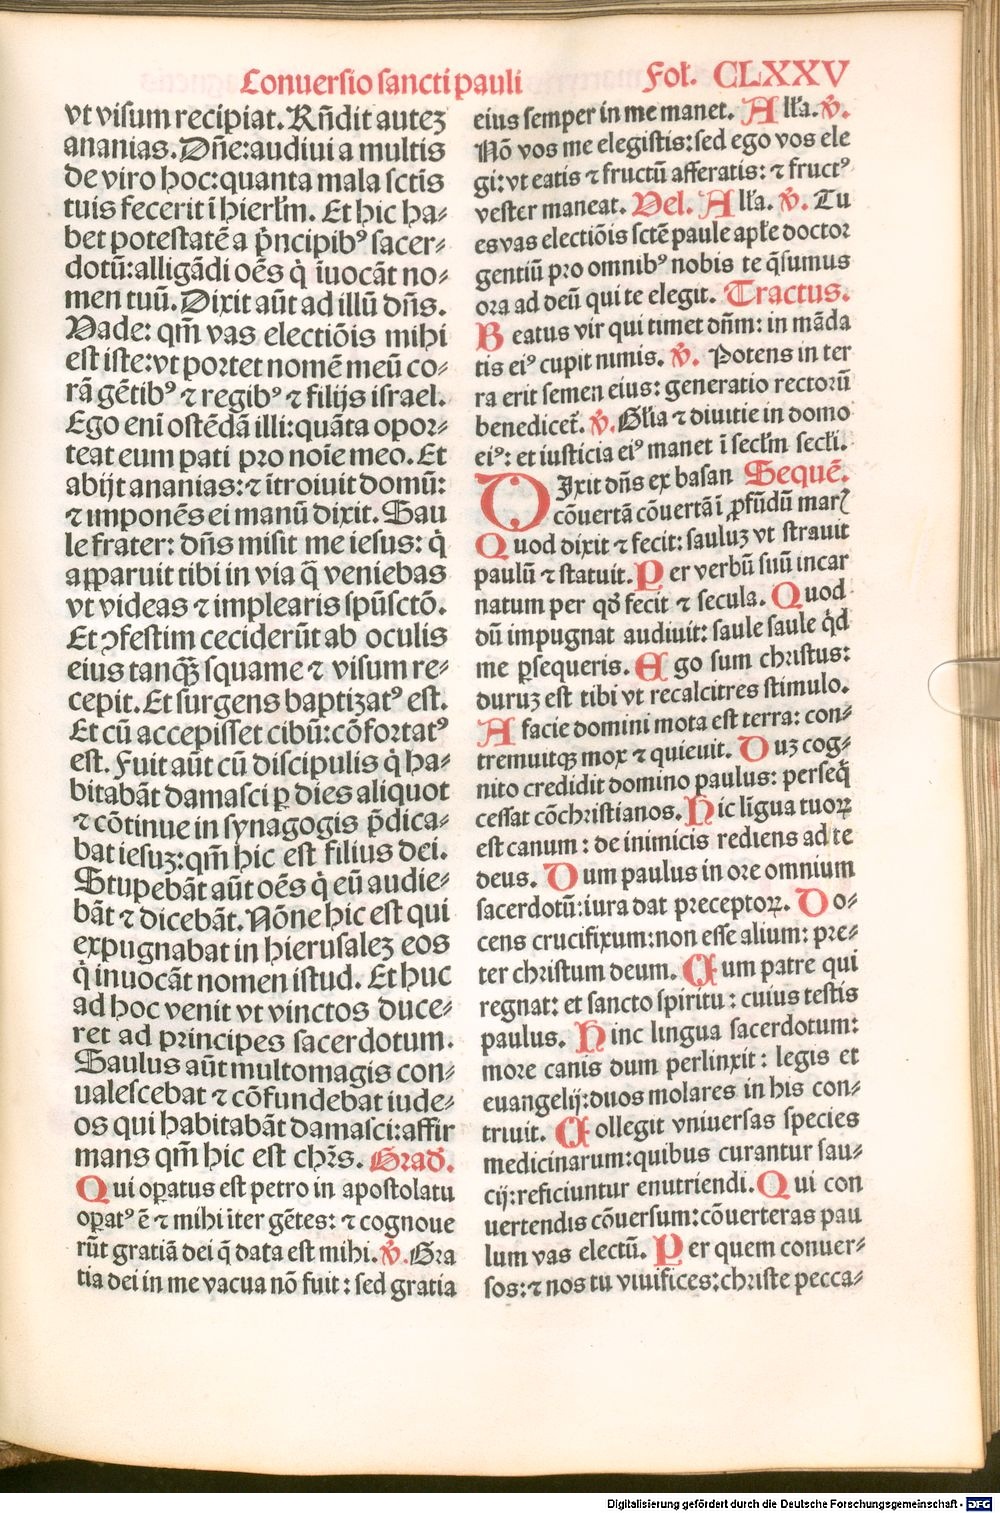 Conuersio sancti pauli Fol. CLXXV
vt visum recipiat. Rñdit auteʒ
ananias. Dñe: audiui a multis
de viro hoc: quanta mala sctīs
tuis fecerit ī hierlm̄. Et hic ha⸗
bet potestatē a p̄ncipibꝰ sacer⸗
dotū: alligādi oēs q̇ īuocāt no⸗
men tuū. Dixit aūt ad illū dñs.
Uade: qm̄ vas electiōis mihi
est iste: vt portet nomē meū co⸗
rā gētibꝰ ⁊ regibꝰ ⁊ filijs israel.
Ego enī ostēdā illi: quāta opor⸗
teat eum pati pro noīe meo. Et
abijt ananias: ⁊ ītroiuit domū:
⁊ imponēs ei manū dixit. Sau
le frater: dñs misit me iesus: q̇
apparuit tibi in via q̄ veniebas
vt videas ⁊ implearis spūsctō.
Et ꝯfestim ceciderūt ab oculis
eius tanqꝫ̄ squame ⁊ visum re⸗
cepit. Et surgens baptizatꝰ est.
Et cū accepisset cibū: cōfortatꝰ
est. Fuit aūt cū discipulis q̇ ha⸗
bitabāt damasci ꝑ dies aliquot
⁊ cōtinue in synagogis p̄dica⸗
bat iesuʒ: qm̄ hic est filius dei.
Stupebāt aūt oēs q̇ eū audie⸗
bāt ⁊ dicebāt. Nōne hic est qui
expugnabat in hierusaleʒ eos
q̇ inuocāt nomen istud. Et huc
ad hoc venit vt vinctos duce⸗
ret ad principes sacerdotum.
Saulus aūt multomagis con⸗
ualescebat ⁊ cōfundebat iude⸗
os qui habitabāt damasci: affir
mans qm̄ hic est chr̄s. Grad̄.
Qui oꝑatus est petro in apostolatu
oꝑatꝰ ē ⁊ mihi īter gētes: ⁊ cognoue
rūt gratiā dei q̄ data est mihi. ℣. Gra
tia dei in me vacua nō fuit: sed gratia
eius semper in me manet. Alla. ℣.
Nō vos me elegistis: sed ego vos ele
gi: vt eatis ⁊ fructū afferatis: ⁊ fructꝰ
vester maneat. Uel. Alla. ℣. Tu
es vas electiōis sctē paule aple doctor
gentiū pro omnibꝰ nobis te q̄sumus
ora ad deū qui te elegit. Tractus.
Beatus vir qui timet dñm: in māda
tis eiꝰ cupit nimis. ℣. Potens in ter
ra erit semen eius: generatio rectorū
benedicet̄. ℣. Glia ⁊ diuitie in domo
eiꝰ: et iusticia eiꝰ manet ī seclm̄ secli.
DIxit dñs ex basan Sequē.
cōuertā cōuertā ī ꝓfūdū marꝭ
Quod dixit ⁊ fecit: sauluʒ vt strauit
paulū ⁊ statuit. Per verbū suū incar
natum per qd̄ fecit ⁊ secula. Quod
dū impugnat audiuit: saule saule q̇d
me ꝑsequeris. Ego sum christus:
duruʒ est tibi vt recalcitres stimulo.
A facie domini mota est terra: con⸗
tremuitqꝫ mox ⁊ quieuit. Duʒ cog⸗
nito credidit domino paulus: perseq̇
cessat cōchristianos. Hic līgua tuoꝝ
est canum: de inimicis rediens ad te
deus. Dum paulus in ore omnium
sacerdotū: iura dat preceptoꝝ. Do⸗
cens crucifixum: non esse alium: pre⸗
ter christum deum. Cum patre qui
regnat: et sancto spiritu: cuius testis
paulus. Hinc lingua sacerdotum:
more canis dum perlinxit: legis et
euangelij: duos molares in his con⸗
triuit. Collegit vniuersas species
medicinarum: quibus curantur sau⸗
cij: reficiuntur enutriendi. Qui con
uertendis cōuersum: cōuerteras pau
lum vas electū. Per quem conuer⸗
sos: ⁊ nos tu viuifices: christe pecca⸗
Digitalisierung gefördert durch die Deutsche Forschungsgemeinschaft - DFG